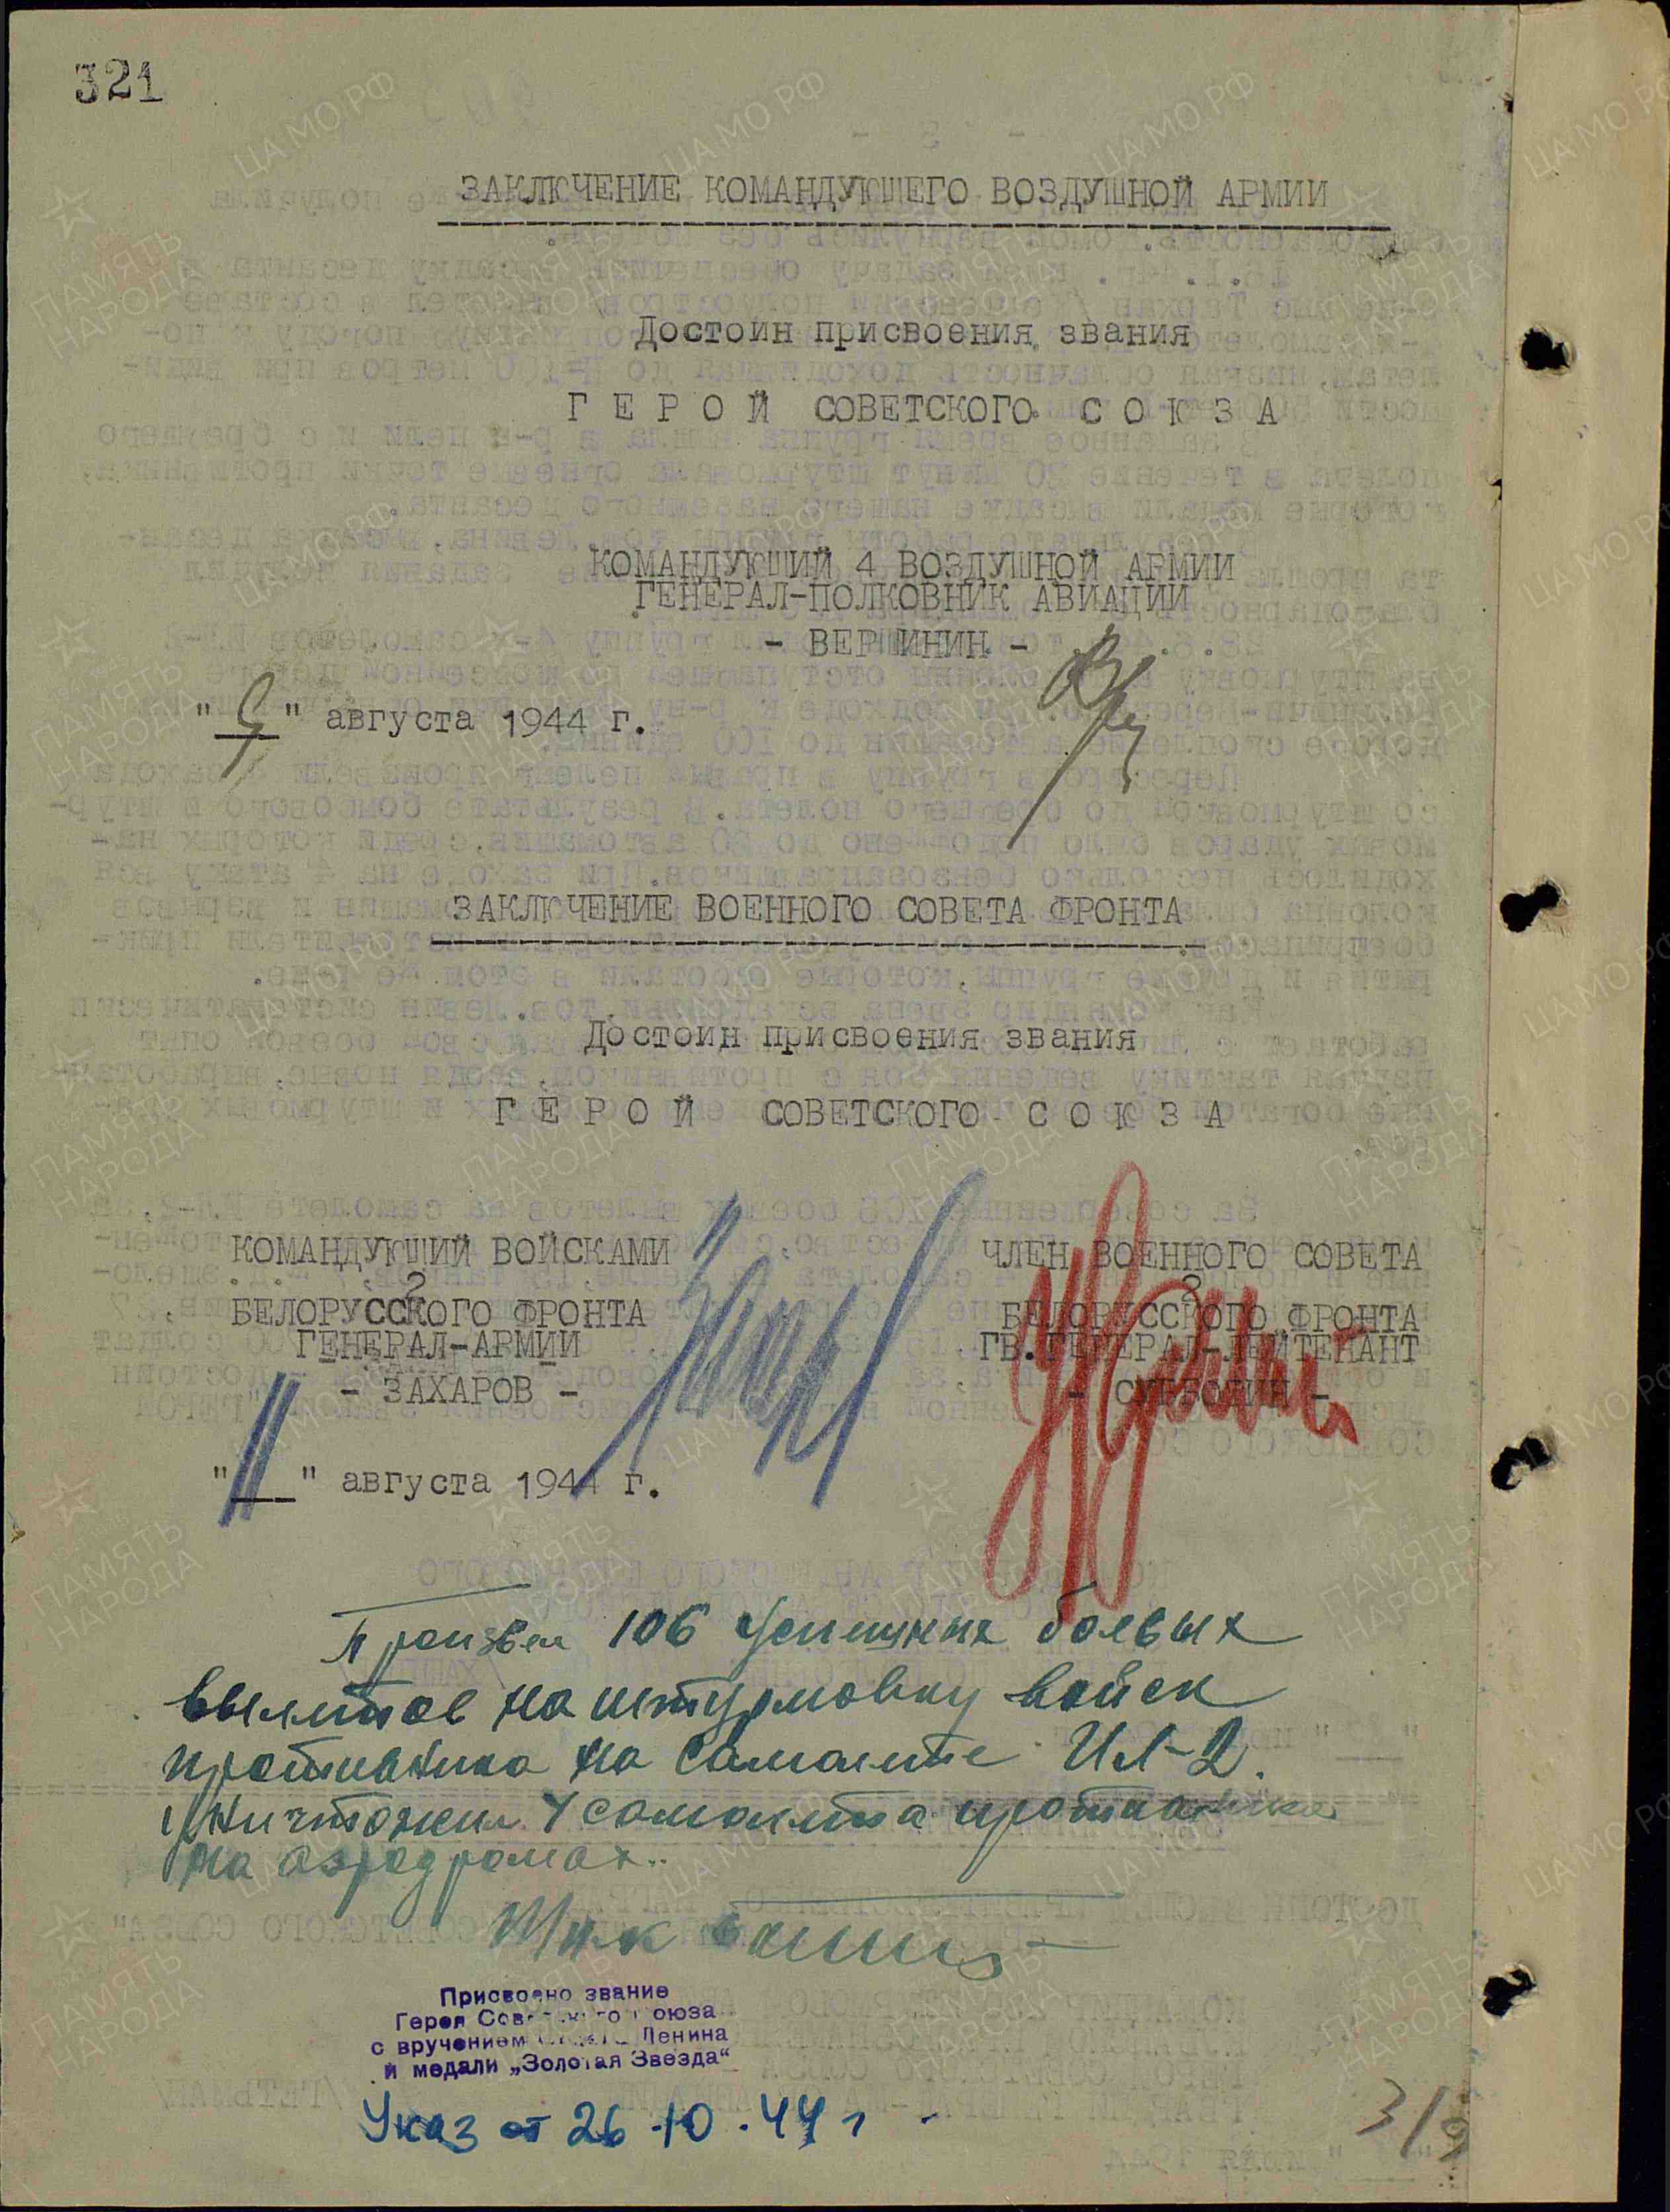 321
ЗАКЛЮЧЕНИЕ КОМАНДУЮЩЕГО ВОЗДУШНОЙ АРМИИ
Достоин присвоения звания
Г Е Р О Й СОВЕТСКОГО С О Ю З А
КОМАНДУЮЩИЙ 4 ВОЗДУШНОЙ АРМИИ
ГЕНЕРАЛ-ПОЛКОВНИК АВИАЦИИ
- ВЕРШИНИН -
"9" августа 1944 г.
ЗАКЛЮЧЕНИЕ ВОЕННОГО СОВЕТА ФРОНТА
Достоин присвоения звания
Г Е Р О Й СОВЕТСКОГО С О Ю З А
КОМАНДУЮЩИЙ ВОЙСКАМИ
2
БЕЛОРУССКОГО ФРОНТА
ГЕНЕРАЛ-АРМИИ
- ЗАХАРОВ -
"11" августа 1944 г.
ЧЛЕН ВОЕННОГО СОВЕТА
2
БЕЛОРУССКОГО ФРОНТА
ГВ.ГЕНЕРАЛ-ЛЕЙТЕНАНТ
- СУББОТИН -
Произвел 106 успешных боевых
вылетов на штурмовку войск
противника на самолете Ил-2.
Уничтожил 4 самолета противника
на аэродромах.
Присвоено звание
Героя Советского Союза
с вручением ордена Ленина
и медали „Золотая Звезда“
Указ от 26.10.44 г
3/9
ЦАМО РФ
ПАМЯТЬ НАРОДА